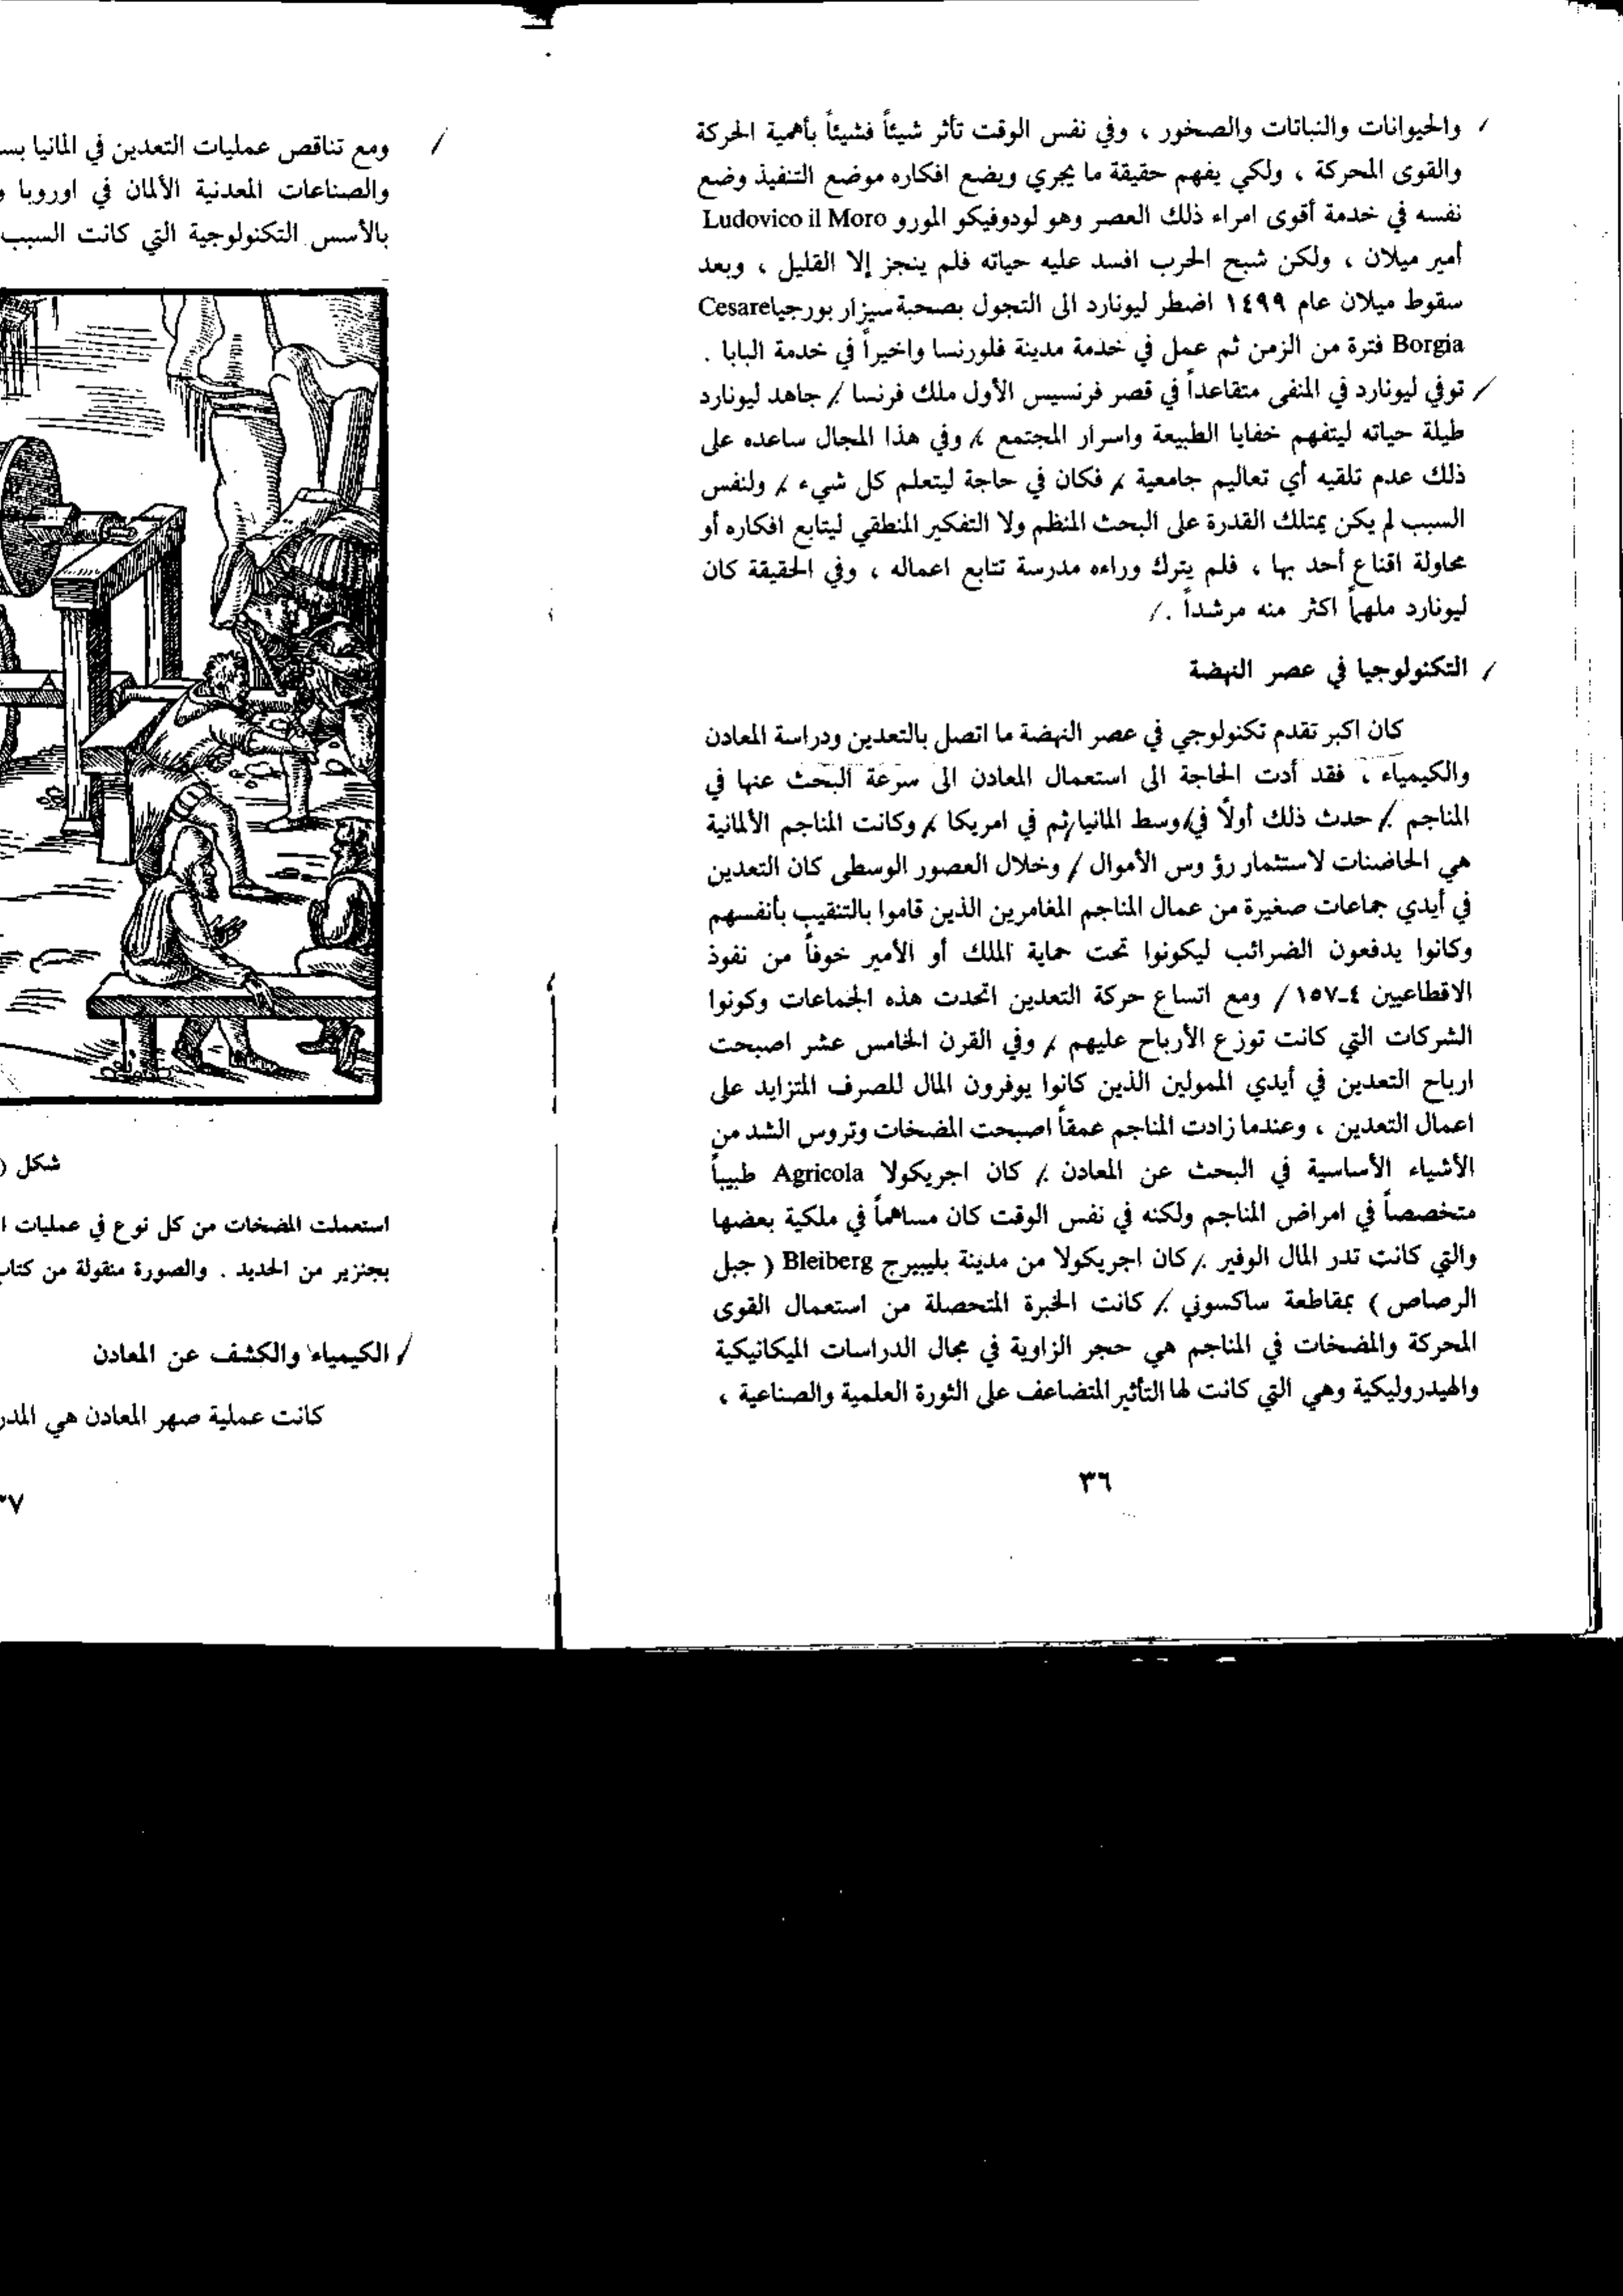 والحيوانات والنباتات والصخور ، وفي نفس الوقت تأثر شيئاً فشيئاً بأهمية الحركة
والقوى المحركة ، ولكي يفهم حقيقة ما يجري ويضع افكاره موضع التنفيذ وضع
نفسه في خدمة أقوى امراء ذلك العصر وهو لودوفيكو المورو Ludovico il Moro
أمير ميلان ، ولكن شبح الحرب افسد عليه حياته فلم ينجز إلا القليل ، وبعد
سقوط ميلان عام ١٤٩٩ اضطر ليونارد الى التجول بصحبة سيزار بورجيا Cesare
Borgia فترة من الزمن ثم عمل في خدمة مدينة فلورنسا واخيراً في خدمة البابا .
توفي ليونارد في المنفى متقاعداً في قصر فرنسيس الأول ملك فرنسا . / جاهد ليونارد
طيلة حياته ليتفهم خفايا الطبيعة واسرار المجتمع ، وفي هذا المجال ساعده على
ذلك عدم تلقيه أي تعاليم جامعية ، فكان في حاجة ليتعلم كل شيء ، ولنفس
السبب لم يكن يمتلك القدرة على البحث المنظم ولا التفكير المنطقي ليتابع افكاره أو
محاولة اقناع أحد بها ، فلم يترك وراءه مدرسة تتابع اعماله ، وفي الحقيقة كان
ليونارد ملهماً اكثر منه مرشداً . /
/ التكنولوجيا في عصر النهضة
كان اكبر تقدم تكنولوجي في عصر النهضة ما اتصل بالتعدين ودراسة المعادن
والكيمياء ، فقد أدت الحاجة الى استعمال المعادن الى سرعة البحث عنها في
المناجم . / حدث ذلك أولاً في وسط المانيا ثم في امريكا ، وكانت المناجم الألمانية
هي الحاضنات لاستثمار رؤ وس الأموال / وخلال العصور الوسطى كان التعدين
في أيدي جماعات صغيرة من عمال المناجم المغامرين الذين قاموا بالتنقيب بأنفسهم
وكانوا يدفعون الضرائب ليكونوا تحت حماية الملك أو الأمير خوفاً من نفوذ
الاقطاعيين ٤-١٥٧ / ومع اتساع حركة التعدين اتحدت هذه الجماعات وكونوا
الشركات التي كانت توزع الأرباح عليهم ، وفي القرن الخامس عشر اصبحت
ارباح التعدين في أيدي الممولين الذين كانوا يوفرون المال للصرف المتزايد على
اعمال التعدين ، وعندما زادت المناجم عمقاً اصبحت المضخات وتروس الشد من
الأشياء الأساسية في البحث عن المعادن . / كان اجريكولا Agricola طبيباً
متخصصاً في امراض المناجم ولكنه في نفس الوقت كان مساهماً في ملكية بعضها
والتي كانت تدر المال الوفير . / كان اجريكولا من مدينة بليبيرج Bleiberg ( جبل
الرصاص ) بمقاطعة ساكسوني . / كانت الخبرة المتحصلة من استعمال القوى
المحركة والمضخات في المناجم هي حجر الزاوية في مجال الدراسات الميكانيكية
والهيدروليكية وهي التي كانت لها التأثير المتضاعف على الثورة العلمية والصناعية ،
٣٦
ومع تناقص عمليات التعدين في المانيا
والصناعات المعدنية الألمان في اوروبا
بالأسس التكنولوجية التي كانت السبب
شكل (
استعملت المضخات من كل نوع في عمليات
بجنزير من الحديد . والصورة منقولة من
/ الكيمياء والكشف عن المعادن
كانت عملية صهر المعادن هي